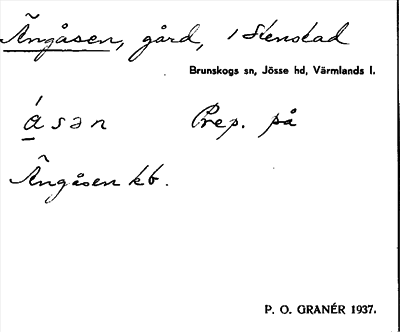 Ängåsen, gård, i Stenstad
Brunskogs sn, Jösse hd, Värmlands l.
åsən Prep. på
Ängåsen kb.
P. O. GRANÉR 1937.